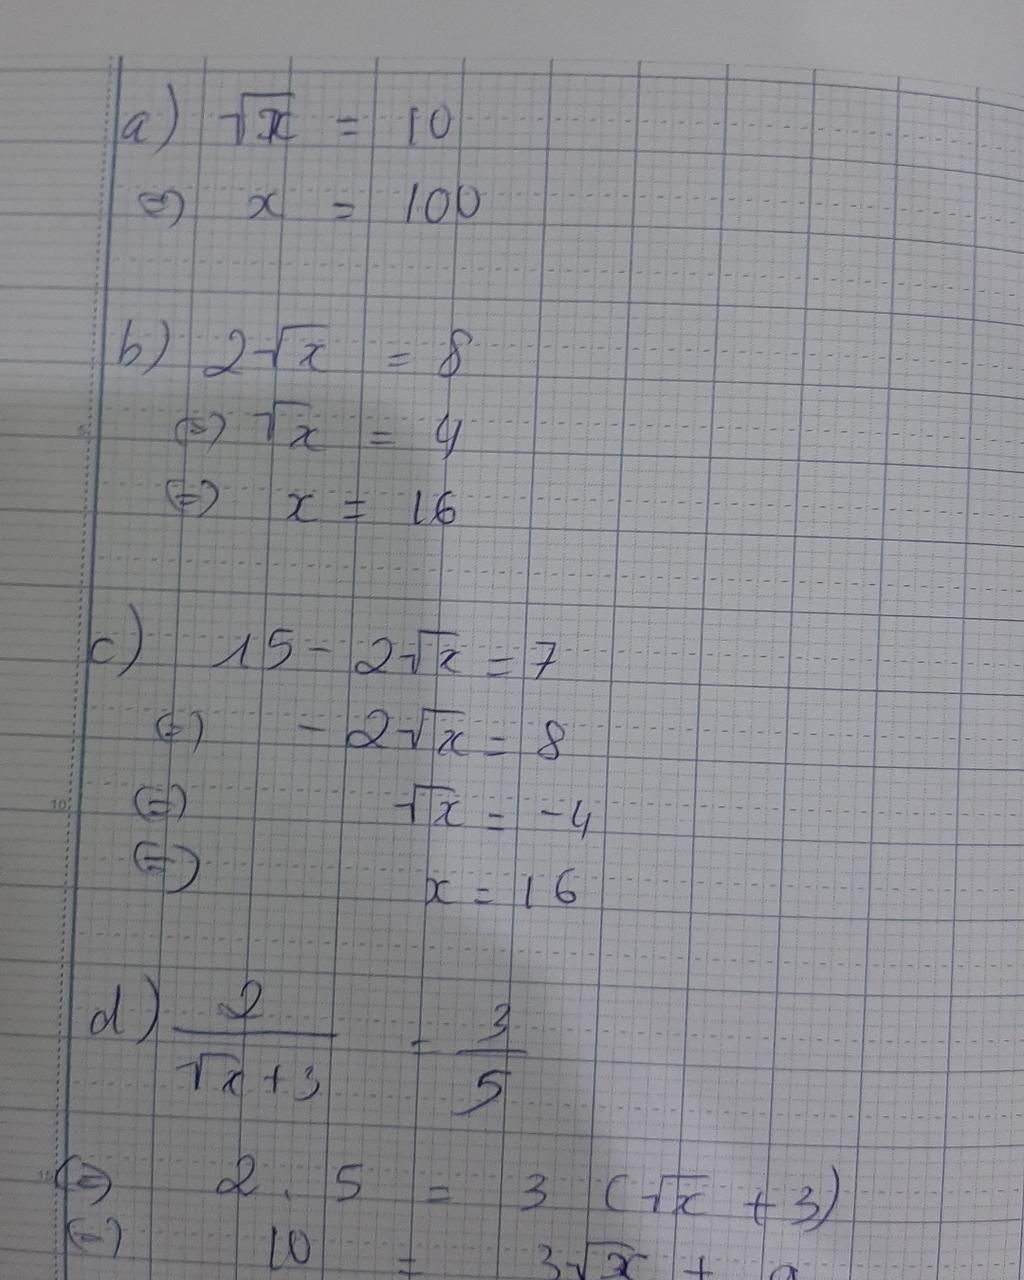 a) √x = 10
⇔ x = 100
b) 2√x = 8
⇔ √x = 4
⇔ x = 16
c) 15 - 2√x = 7
⇔ - 2√x = 8
⇔ √x = -4
⇔ x = 16
d) 2/(√x + 3) = 3/5
⇔ 2 . 5 = 3 (√x + 3)
⇔ 10 = 3√x +